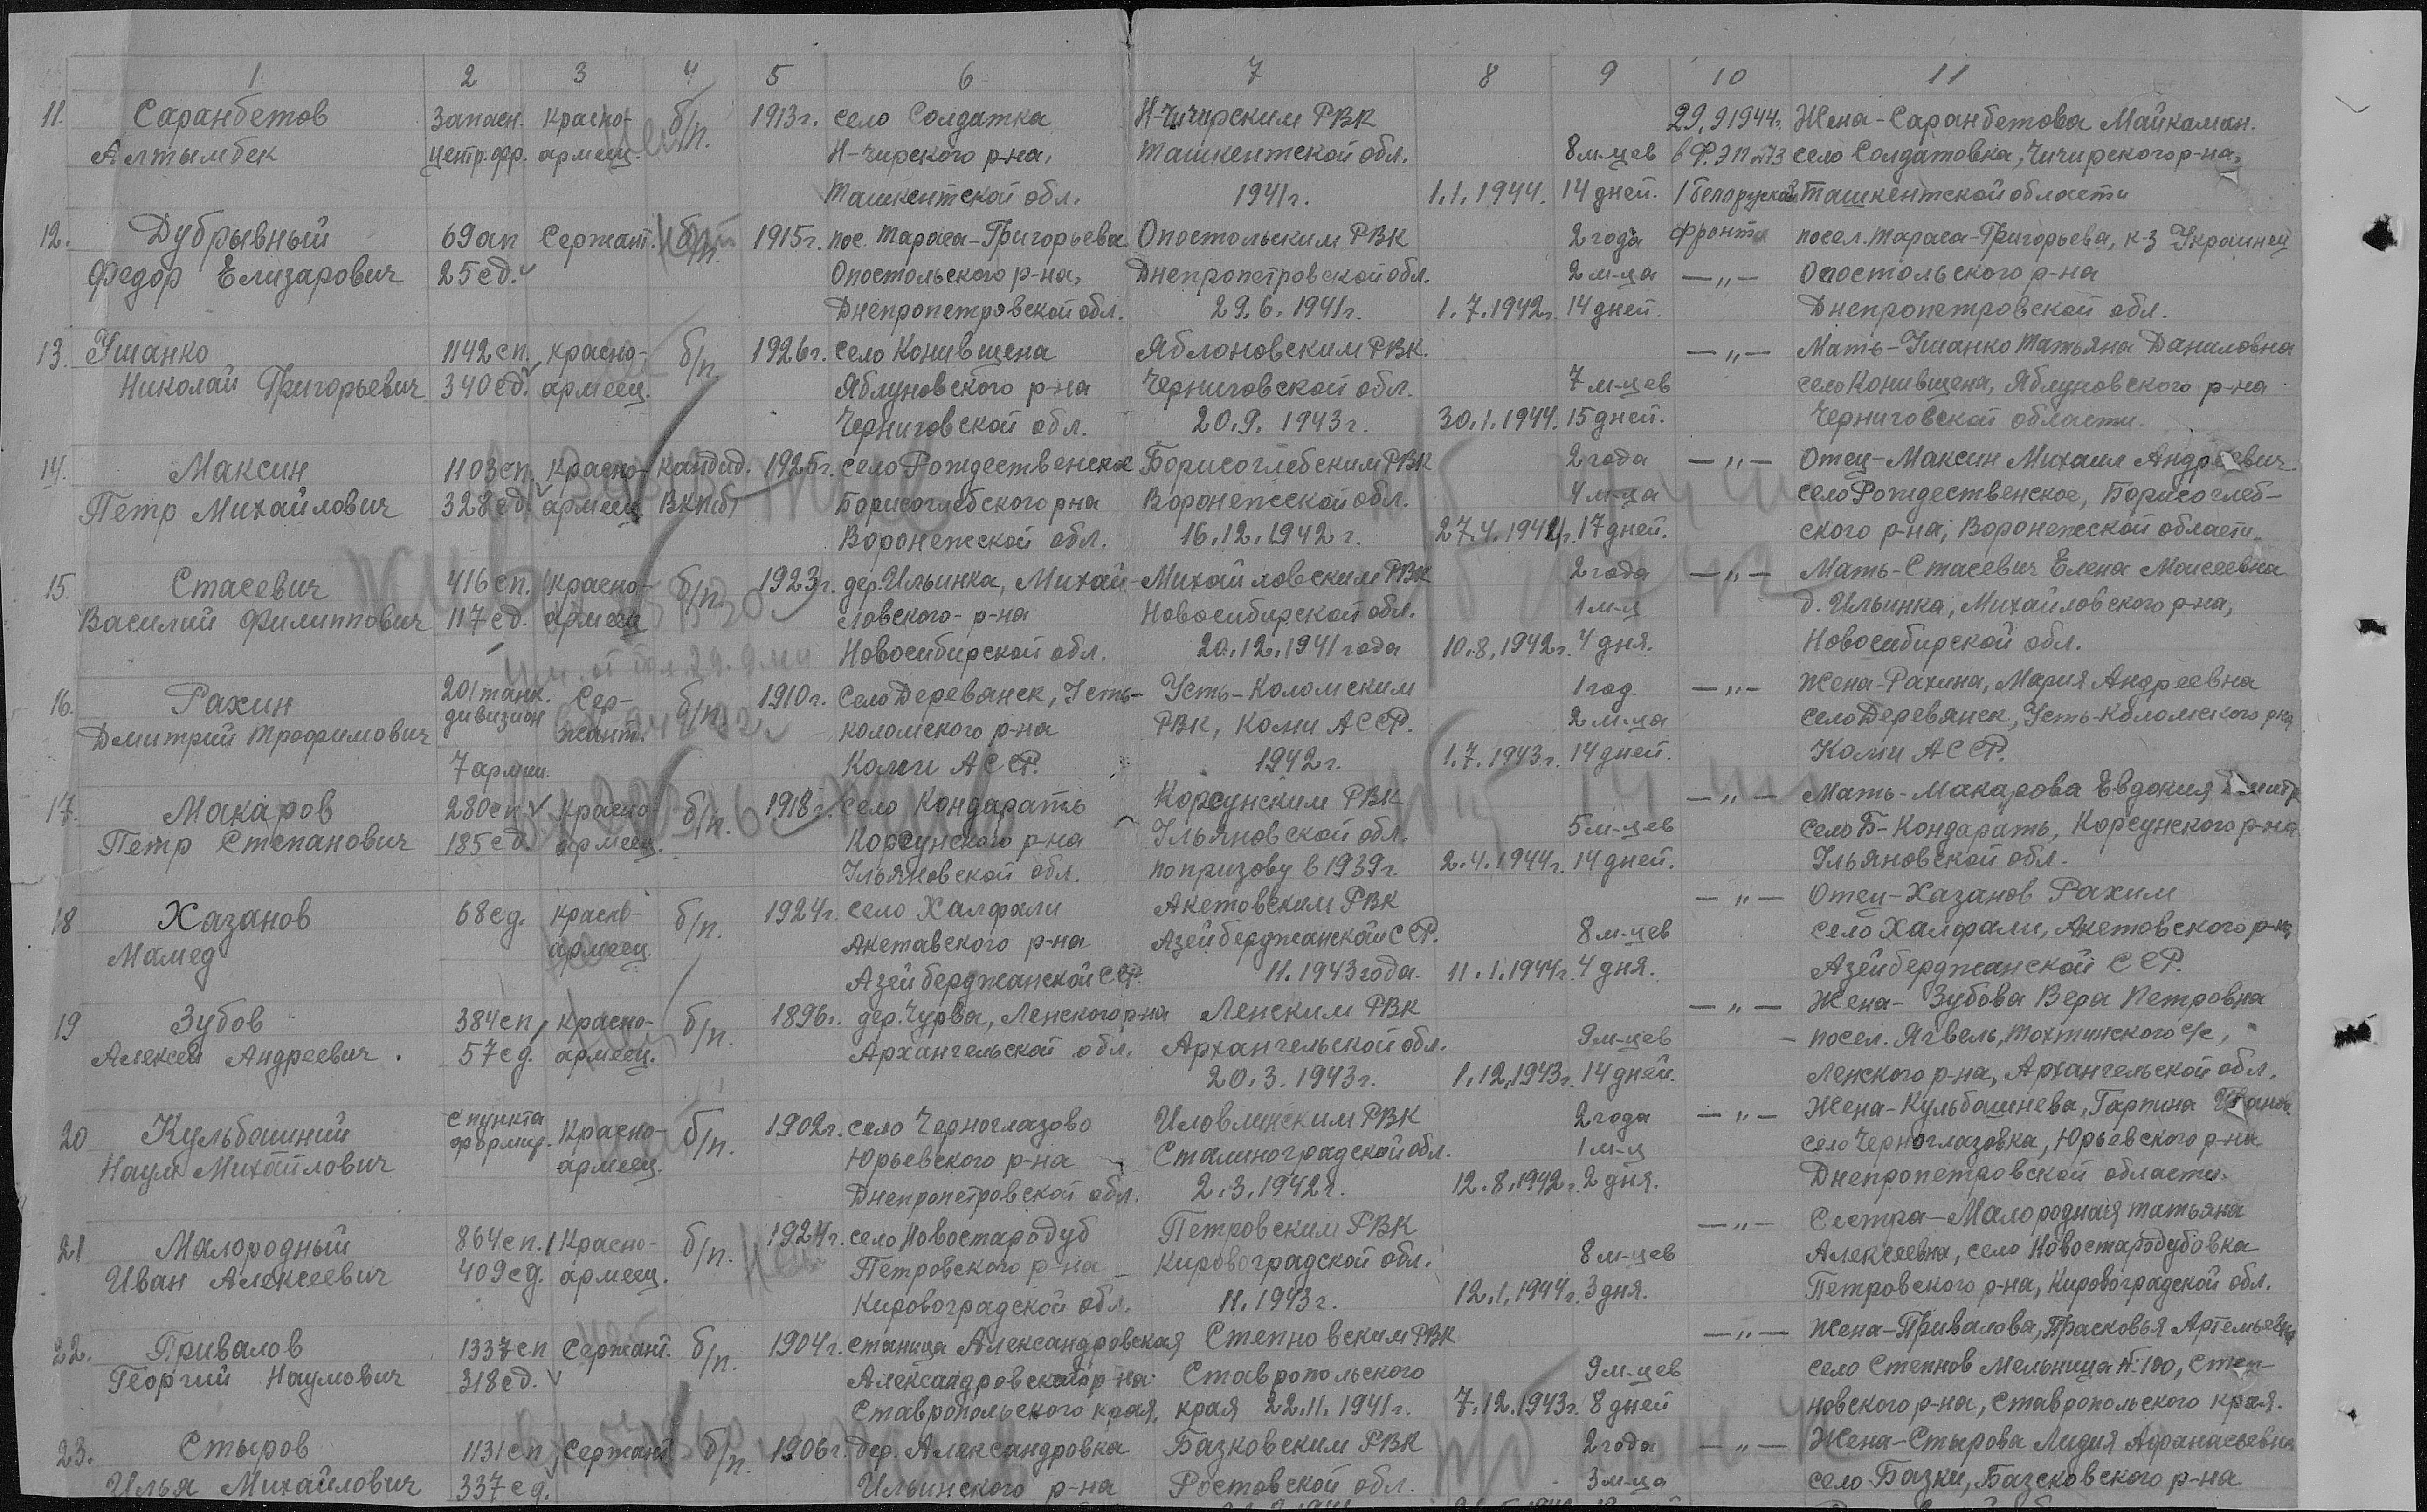 1 2 3 4 5 6 7 8 9 10 11
11. Саранбетов Запасн. красно- б/п. 1913г. село Солдатка Н-Чичирским РВК 29.9.1944г. Жена-Саранбетова Майкаман.
Алтымбек центр.фр. армеец. Н-чирского р-на, Ташкентской обл. 8 м-цев в Ф.ЭП №73 село Солдатовка, Чичирского р-на,
Ташкентской обл. 1941г. 1.1.1944. 14 дней. 1 Белоруского Ташкентской области
12. Дубрывный 69ап Сержант. 1915г. пос. Тараса-Григорьева Опостольским РВК 2 года фронта посел. Тараса-Григорьева, к-з Украинец
Федор Елизарович 25сд. Опостольского р-на, Днепропетровской обл. 2 м-ца —„— Опостольского р-на
Днепропетровской обл. 29.6.1941г. 1.7.1942г. 14 дней. Днепропетровской обл.
13. Ушанко 1142сп. красно- б/п 1926г. село Конивщена Яблоновским РВК. —„— Мать-Ушанко Татьяна Даниловна
Николай Григорьевич 340сд. армеец. Яблуновского р-на Черниговской обл. 7 м-цев село Конивщена, Яблуновского р-на
Черниговской обл. 20.9.1943г. 30.1.1944. 15 дней. Черниговской области.
14. Максин 1103сп. красно- кандид. 1925г. село Рождественское Борисоглебским РВК 2 года —„— Отец-Максин Михаил Андреевич
Петр Михайлович 328сд. армеец ВКП(б) Борисоглебского р-на Воронежской обл. 4 м-ца село Рождественское, Борисоглеб-
Воронежской обл. 16.12.1942г. 27.4. 17 дней. ского р-на, Воронежской области.
15. Стасевич 416сп. красно- б/п. 1923г. дер. Ильинка, Михай- Михайловским РВК 2 года —„— Мать-Стасевич Елена Моисеевна
Василий Филиппович 117сд. армеец ловского- р-на Новосибирской обл. 1 м-ц д. Ильинка, Михайловского р-на,
Новосибирской обл. 20.12.1941 года 10.8.1942г. 4 дня. Новосибирской обл.
16. Рахин 201 танк. Сер- б/п. 1910г. Село Деревянск, Усть- Усть-Коломским 1 год —„— Жена-Рахина, Мария Андреевна
Дмитрий Трофимович дивизион жант. коломского р-на РВК, Коми АССР. 2 м-ца село Деревянск, Усть-Коломского р-на
7 армии. Коми АССР. 1942г. 1.7.1943г. 14 дней. Коми АССР.
17. Макаров 280сп красно- б/п. 1918г. село Кондарать Корсунским РВК —„— Мать-Макарова Евдокия
Петр Степанович 185сд. армеец. Корсунского р-на Ульяновской обл. 5 м-цев село Б-Кондарать, Корсунского р-на
Ульяновской обл. по призову в 1939г. 2.4.1944г. 14 дней. Ульяновской обл.
18 Хазанов 68сд. красно- б/п. 1924г. село Халфали Акетовским РВК —„— Отец-Хазанов Рахим
Мамед армеец. Акетавского р-на Азейберджанской ССР. 8 м-цев село Халфали, Акетовского р-на
Азейберджанской ССР. 11.1943 года. 11.1.1944г. 4 дня. Азейберджанской ССР.
19 Зубов 384сп, красно- б/п. 1896г. дер. Чурва, Ленского р-на Ленским РВК —„— Жена- Зубова Вера Петровна
Алексей Андреевич. 57сд. армеец. Архангельской обл. Архангельской обл. 9 м-цев посел. Ягвель, Тохтинского с/с,
20.3.1943г. 1.12.1943г. 14 дней. Ленского р-на, Архангельской обл.
20 Кульбашний с пункта Красно- б/п. 1902г. село Черноглазово Иловлинским РВК 2 года —„— Жена-Кульбашнева, Гарпина
Наум Михайлович формир. армеец. Юрьевского р-на Сталиноградской обл. 1 м-ц село Черноглазовка, Юрьевского р-на
Днепропетровской обл. 2.3.1942г. 12.8.1942г. 2 дня. Днепропетровской области.
21 Малородный 864сп. Красно- б/п. 1924г. село Новостародуб Петровским РВК —„— Сестра-Малородная Татьяна
Иван Алексеевич 409сд. армеец. Петровского р-на Кировоградской обл. 8 м-цев Алексеевна, село Новостародубовка
Кировоградской обл. 11.1943г. 12.1.1944г. 3 дня. Петровского р-на, Кировоградской обл.
22. Привалов 1337сп Сержант. б/п. 1904г. станица Александровская Степновским РВК —„— Жена-Привалова, Прасковья Артемьевна
Георгий Наумович 318сд. Александровского р-на Ставропольского 9 м-цев село Степнов Мельница №:100, Степ-
Ставропольского края. края 22.11.1941г. 7.12.1943г. 8 дней новского р-на, Ставропольского края.
23. Стыров 1131сп Сержант б/п. 1906г. дер. Александровка Базковским РВК 2 года —„— Жена-Стырова Лидия Афанасьевна
Илья Михайлович 337сд. Ильинского р-на Ростовской обл. 3 м-ца село Базки, Базсковского р-на